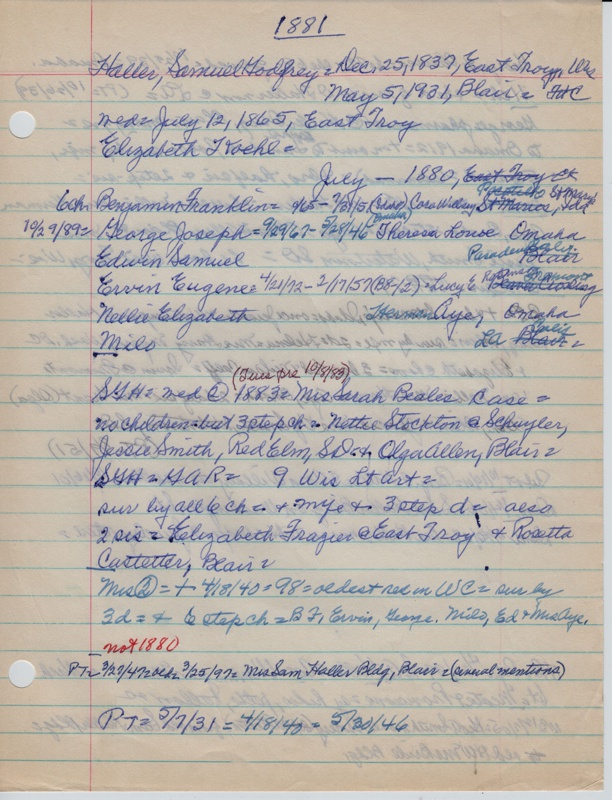 1881
Haller, Samuel Godfrey = Dec. 25, 1837, East Troy, Wis
May 5, 1931, Blair =
med = July 12, 1865, East Troy
Elizabeth Koehl =
July — 1880, East Troy
6 ch. Benjamin Franklin = Cora St Maries, Ida
10/29/89 = George Joseph = 9/29/67 - 5/28/46 Theresa Omaha
Edwin Samuel Pasadena Calif Blair
Ervin Eugene = 4/21/72 - 2/17/57 (BB-12) = Lucy E.
Nellie Elizabeth Herman Aye, Omaha
Milo LA Calif Blair =
(Tues pre 10/8/83)
SGH = med ② 1883 = Mrs Sarah Beales Case =
no children but 3 step ch = Nettie Stockton @ Schuyler,
Jessie Smith, Red Elm, S.D. + Olga Allen, Blair =
SGH = GAR = 9 Wis Lt Art =
sur by all 6 ch = + wife + 3 step d = also
2 sis = Elizabeth Frazier @ East Troy + Rosetta
Castetter, Blair =
Mrs ② = + 4/18/40 = 98 = oldest res in WC = sur by
3 d = + 6 step ch = B F, Ervin, George, Milo, Ed + Mrs Aye.
not 1880
PT = 3/27/47 = 3/25/97 = Mrs Sam Haller Bldg, Blair = (several mentions)
PT = 5/7/31 = 4/18/40 = 5/30/46